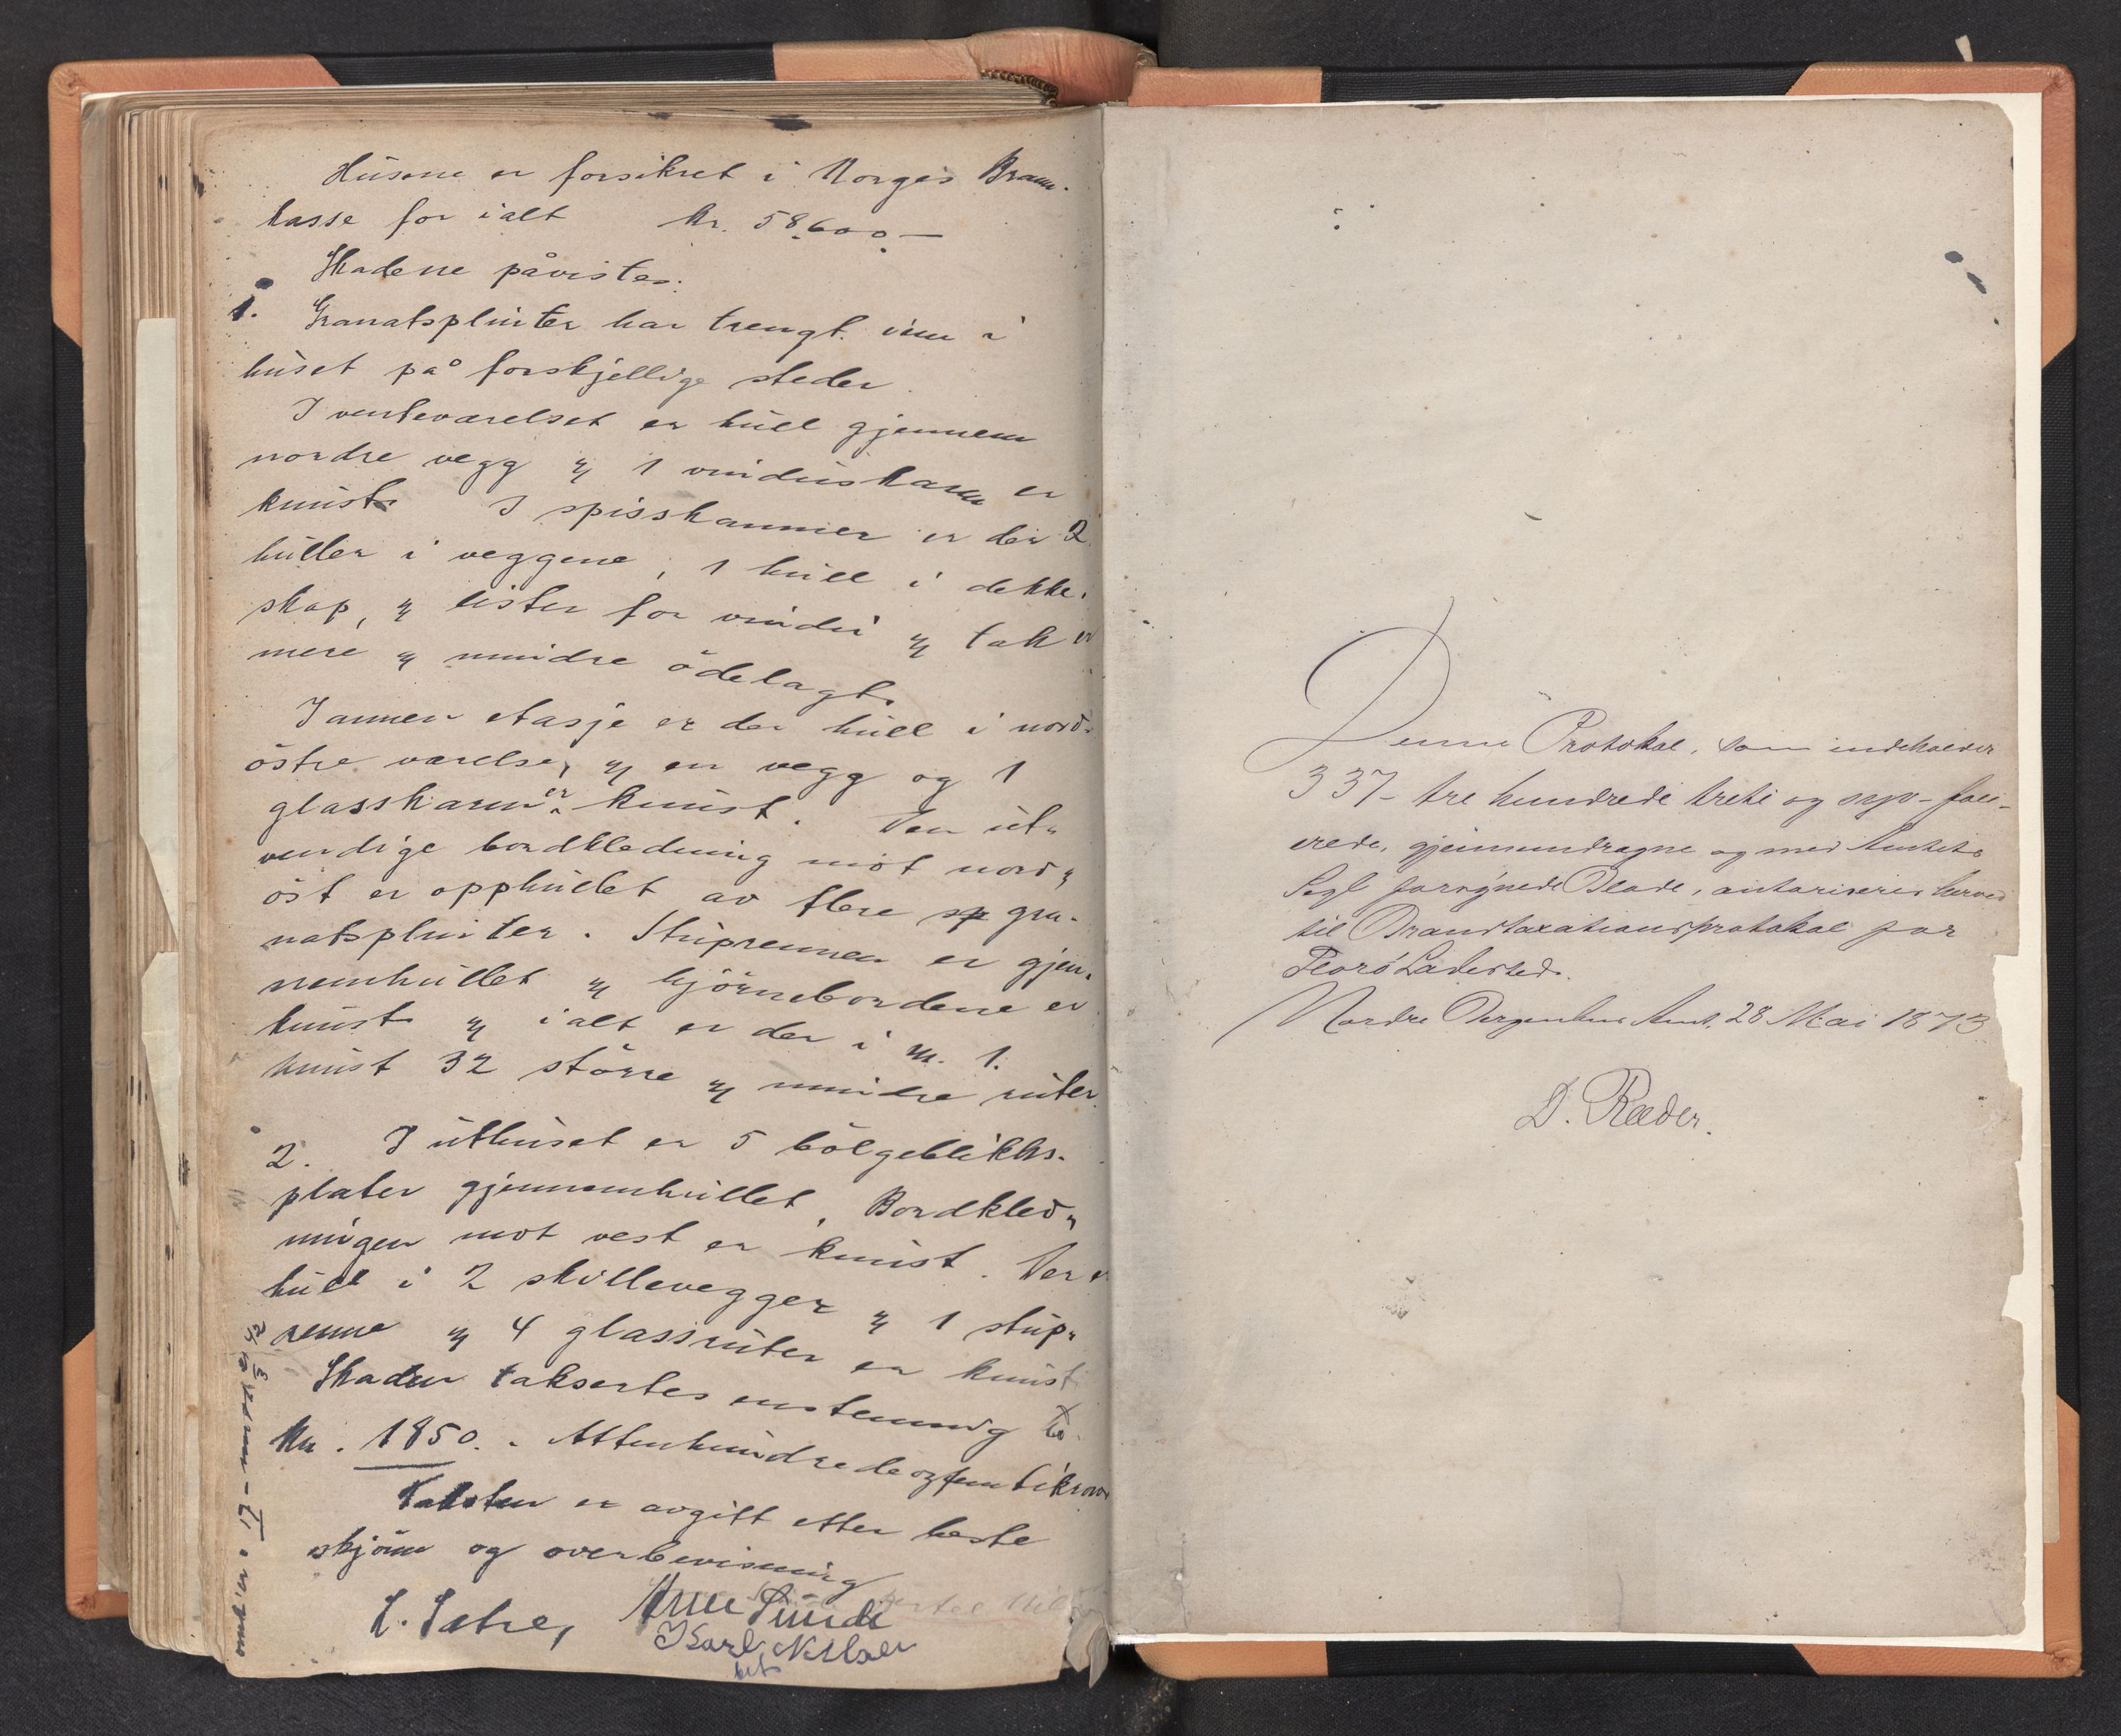 Husene er forsikret i Norges Brann-
kasse for ialt kr. 58.600.-
Skadene påvistes:
1. Granatsplinter har trengt inn i
huset på forskjellige steder.
I venteværelset er hull gjennem
nordre vegg og 1 vinduskarm er
knust. I spisskammer er der 2
huller i veggene, 1 hull i dekke-
skap, og lister for vindu og tak er
mere og mindre ödelagt.
I annen etasje er der hull i nord-
östre værelse, og en vegg og 1
glasskarm er knust. Den ut-
vendige bordkledning mot nord-
öst er opphullet av flere sp gra-
natsplinter. Stuprennen er gjen-
nemhullet og hjörnebordene er
knust og ialt er der i m. 1.
knust 32 större og mindre ruter.
2. I uthuset er 5 bölgeblikks-
plater gjennemhullet. Bordkled-
ningen mot vest er knust. Der er
hull i 2 skillevegger og 1 stup-
renne og 4 glassruter er knust
Skaden taksertes enstemmig til
kr. 1850.- Attenhundredeogfemtikroner
Taksten er avgitt efter beste
skjönn og overbevisning
L. Sætre, Arne Sunde
Karl Nilsen
Denne Protokol, som indeholder
337 - tre hundrede treti og syv - foli-
erede, gjennemdragne og med Amtets
Segl forsynede Blade, autoriseres herved
til Brandtaxationsprotokol for
Florö Ladested.
Nordre Bergenhus Amt, 28 Mai 1873.
D. Ræder.